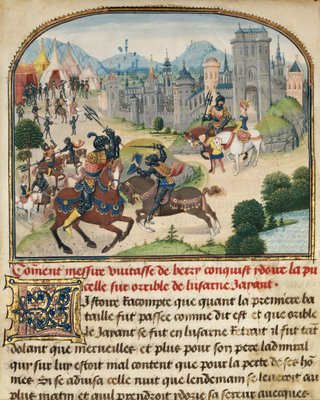 Coment messire huitasse de berry conquist ydoire la pu
celle sur orrible de lusarne Jayant .
Istoire Racompte que quant la premiere ba
taille fut passee comme dit est et que orible
le Jayant se fut en lusarne Retrait il fut tant
dolant que merveilles et plus pour son pere ladmiral
qui sur luy estoit mal content que pour la perte de ses hō
mes Si se advisa celle nuit que lendemain se leveroit au
plus matin et qui prendroit ydoire sa serour avecques